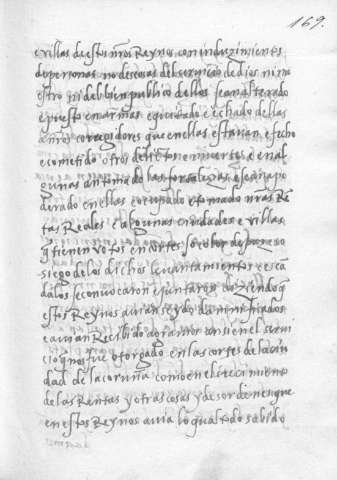 169.
e villas destos nros Reynos con induzimiento
de personas no deseosas del serujcio de dios nj nue
stro nj del bien publico dellos sean alterado
e puesto en armas e quitado e echado dellas
a nros corregidores que en ellas estauan e fecho
e cometido otros delictos e muertes e en al
gunas an tomado las fortalezas e se an apo
derado en ellas e ocupado e tomado nras Ren
tas Reales e algunas ciudades e villas
q tienen votos en cortes so color de poner so
siego de los dichos leuantamientos e escan
dalos se conuocaron e juntaron diziendo q
estos Reynos auian seydo dannificados
e auian Recibido agrauios ansi en el serui
cio q nos fue otorgado en las cortes de la ciu
dad de la coruña como en el crecimiento
de las Rentas y otras cosas y desordenes que
en estos Reynos auia lo qual todo sabido